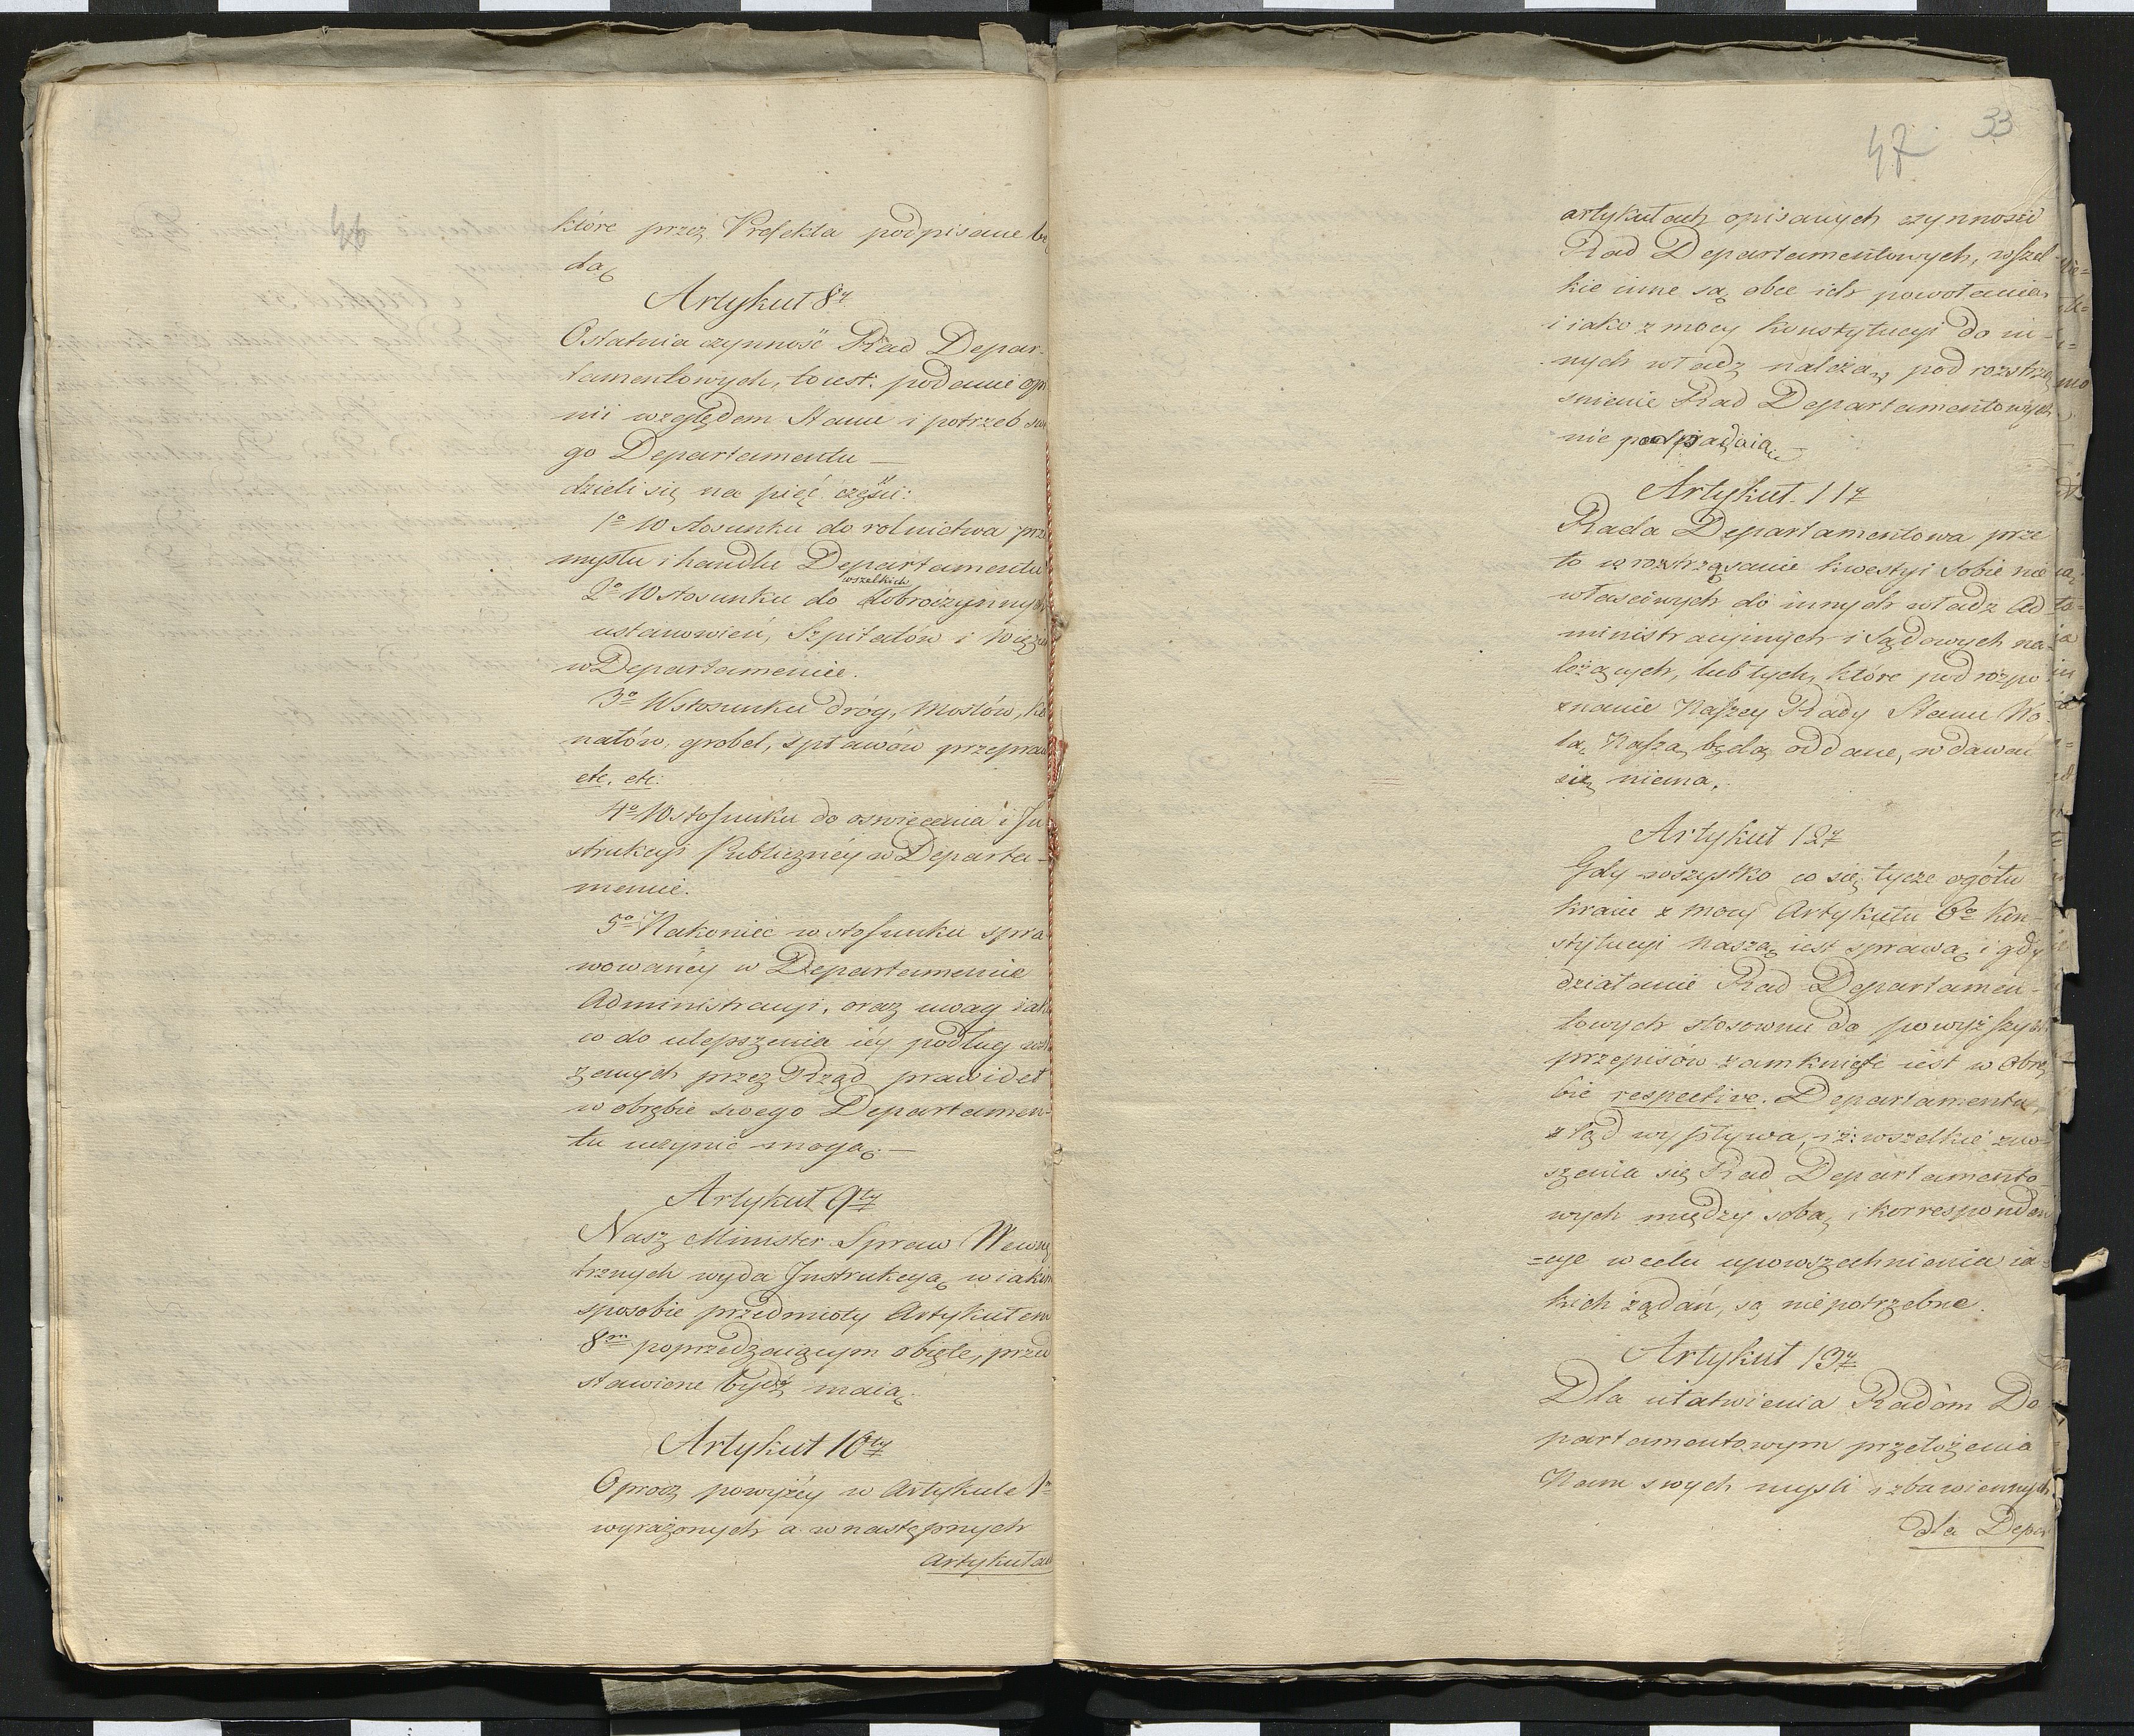 46
które przez Prefekta podpisane bę
dą
Artykuł 8y
Ostatnia czynność Rad Depar-
tamentowych, to iest: podanie opi
nii względem Stanu i potrzeb swe
go Departamentu —
dzieli się na pięć części:
1o W stosunku do rolnictwa prze
mysłu i handlu Departamentu
wszelkich
2o W stosunku do dobroczynnych
ustanowień, Szpitalów i Więzień
w Departamencie.
3o W stosunku dróg, Mostów, Ka
nałów, grobel, spławów przepraw
etc. etc:
4o W stosunku do oswiecenia i In
strukcyi Publiczney w Departa-
mencie.
5o Nakoniec w stosunku spra
wowaney w Departamencie
Administracyi, oraz uwag iakie
co do ulepszenia iéy podług
przez Rząd prawideł
w obrębie swego Departamen-
tu uczynić mogą. —
Artykuł 9ty
Nasz Minister Spraw Wewnę
trznych wyda Instrukcyą w iakim
sposobie przedmioty Artykułem
8m poprzedzaiącym obięte, przed
stawione bydź maią.
Artykuł 10ty
Oprócz powyżéy w Artykule 1o
wyrażonych a w następnych
Artykułac
47 33
artykułach opisanych czynności
Rad Departamentowych, wszel
kie inne są obce ich powołania
i iako z mocy konstytucyi do in-
nych władz należą, pod rozstrzą
śnienie Rad Departamentowych
nie podpadaią
Artykuł 11y
Rada Departamentowa prze
to w roztrząsanie kwestyi Sobie nie
właściwych do innych władz Ad
ministracyinych i Sądowych na-
leżących, lub tych, które pod rozpo
znanie Naszey Rady Stanu Wo
lą Naszą będą oddane, wdawać
się niema.
Artykuł 12y
Gdy wszystko co się tycze ogółu
kraiu z mocy Artykułu 6o Kon-
stytucyi naszą iest sprawą i gdy
działanie Rad Departamen-
towych stosownie do powyższych
przepisów zamknięte iest w Obrę
bie respective. Departamentu,
ztąd wypływa, iż wszelkie zno-
szenia się Rad Departamento-
wych między sobą i korresponden
=cye w celu upowszechnienia ia-
kich żądań, są niepotrzebne.
Artykuł 13y
Dla ułatwienia Radóm De
partamentowym przełożenia
Nam swych mysli zbawiennych
dla Depar